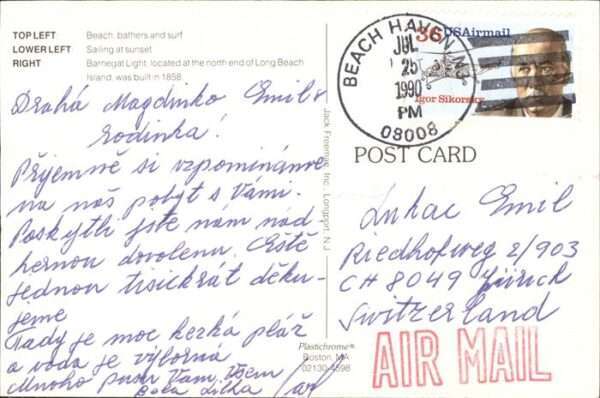 TOP LEFT Beach, bathers and surf
LOWER LEFT Sailing at sunset
RIGHT Barnegat Light, located at the north end of Long Beach
Island, was built in 1858.
Drahá Magdinko Emil &
rodinka!
Příjemně si vzpomínáme
na náš pobyt s Vámi.
Poskytli jste nám nád
hernou dovolenu. Eště
jednou tisickrát děku-
jeme
Tady je moc hezká pláž
a voda je výborná
Mnoho pusu Vám Všem
Jack Freeman, Inc., Longport, N.J.
Plastichrome®
Boston, MA
02130-4598
BEACH HAVEN NJ
JUL
25
1990
PM
08008
36 USAirmail
Igor Sikorsky
POST CARD
Lukac Emil
Riedhofweg 2/903
CH 8049 Zürich
Switzerland
AIR MAIL